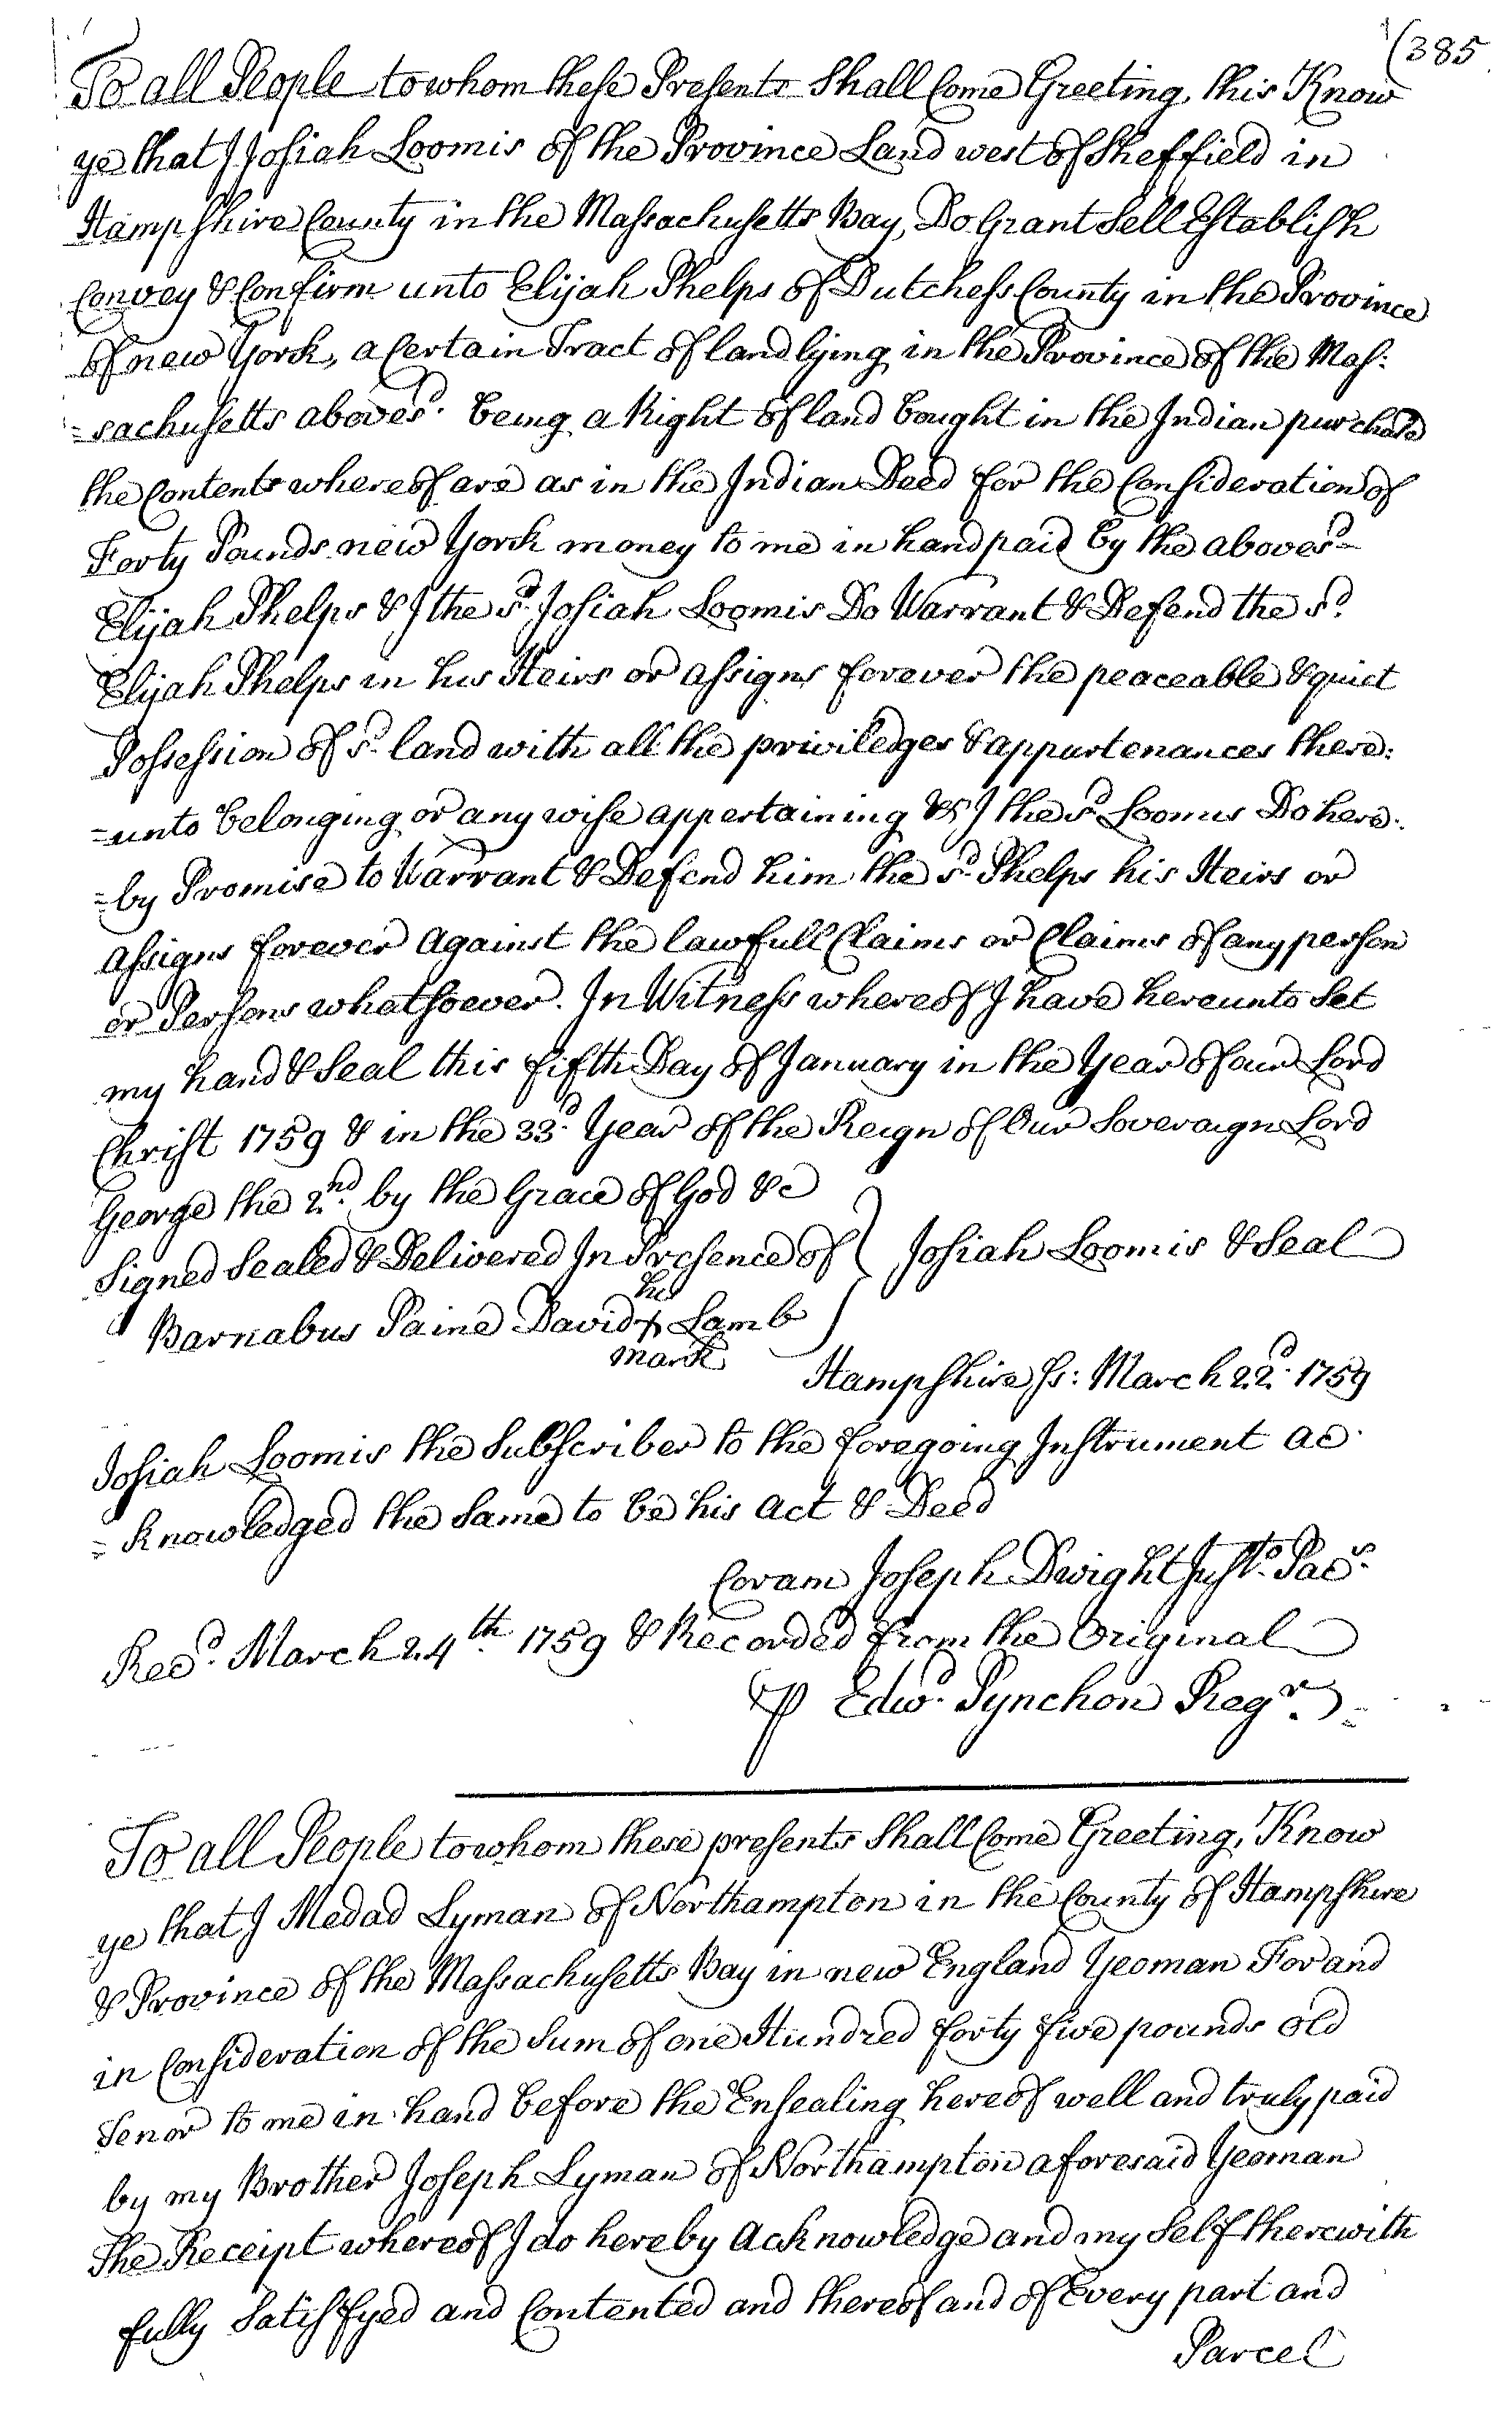 (385
To all People to whom these Presents Shall Come Greeting, this Know
ye that I Josiah Loomis of the Province Land west of Sheffield in
Hampshire County in the Massachusetts Bay, Do Grant Sell Establish
Convey & Confirm unto Elijah Phelps of Dutchess County in the Province
of new York, a Certain Tract of land lying in the Province of the Mas:
=sachusetts aboves.d being a Right of land bought in the Indian purchase
the Contents whereof are as in the Indian Deed for the Consideration of
Forty Pounds new York money to me in hand paid by the aboves.d
Elijah Phelps & I the s.d Josiah Loomis Do Warrant & Defend the s.d
Elijah Phelps in his Heirs or assigns forever the peaceable & quiet
Possession of s.d land with all the priviledges & appurtenances there:
=unto belonging or any wise appertaining & I the s.d Loomis Do here:
=by Promise to Warrant & Defend him the s.d Phelps his Heirs or
assigns forever against the lawfull Claims or Claims of any person
or Persons whatsoever. In Witness whereof I have hereunto Set
my hand & Seal this fifth Day of January in the Year of our Lord
Christ 1759 & in the 33.d Year of the Reign of Our Soveraign Lord
George the 2.nd by the Grace of God &c
Signed Sealed & Delivered In Presence of } Josiah Loomis & Seal
his
Barnabus Paine David + Lamb
mark
Hampshire ss: March 22.d 1759
Josiah Loomis the Subscriber to the foregoing Instrument ac
=knowledged the Same to be his Act & Deed
Coram Joseph Dwight Just.o Pac.s
Rec.d March 24.th 1759 & Recorded from the Original
⅌ Edw.d Pynchon Reg.r
To all People to whom these presents Shall Come Greeting, Know
ye that I Medad Lyman of Northampton in the County of Hampshire
& Province of the Massachusetts Bay in new England Yeoman For and
in Consideration of the Sum of one Hundred forty five pounds old
Tenor to me in hand before the Ensealing hereof well and truly paid
by my Brother Joseph Lyman of Northampton aforesaid Yeoman
The Receipt whereof I do hereby Acknowledge and my Self therewith
fully Satisfyed and Contented and thereof and of Every part and
Parcel